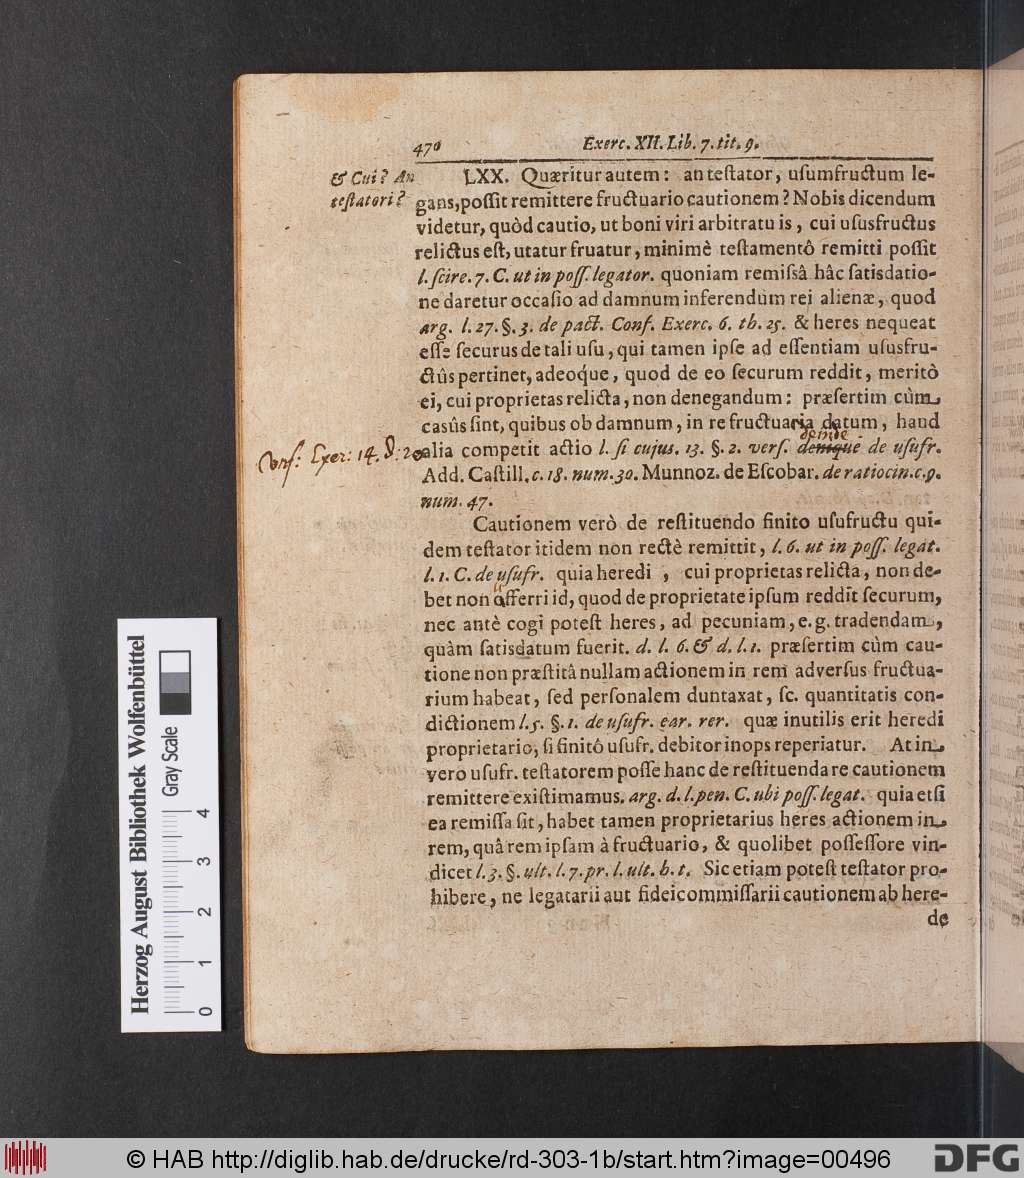 470 Exerc. XII. Lib. 7. tit. 9.
& Cui? An
testatori?
LXX. Quæritur autem: an testator, usumfructum le-
gans, possit remittere fructuario cautionem? Nobis dicendum
videtur, quòd cautio, ut boni viri arbitratu is, cui ususfructus
relictus est, utatur fruatur, minimè testamentô remitti possit
l. scire. 7. C. ut in poss. legator. quoniam remissâ hâc satisdatio-
ne daretur occasio ad damnum inferendum rei alienæ, quod
arg. l. 27. §. 3. de pact. Conf. Exerc. 6. th. 25. & heres nequeat
esse securus de tali usu, qui tamen ipse ad essentiam ususfru-
ctûs pertinet, adeoque, quod de eo securum reddit, meritò
ei, cui proprietas relicta, non denegandum: præsertim cùm
casûs sint, quibus ob damnum, in re fructuaria datum, haud
deinde
Conf. Exer: 14. §: 20
alia competit actio l. si cujus. 13. §. 2. vers. denique de usufr.
Add. Castill. c. 18. num. 30. Munnoz. de Escobar. de ratiocin. c. 9.
num. 47.
Cautionem verò de restituendo finito usufructu qui-
dem testator itidem non rectè remittit, l. 6. ut in poss. legat.
l. 1. C. de usufr. quia heredi, cui proprietas relicta, non de-
bet non afferri id, quod de proprietate ipsum reddit securum,
nec antè cogi potest heres, ad pecuniam, e. g. tradendam,
quàm satisdatum fuerit. d. l. 6. & d. l. 1. præsertim cùm cau-
tione non præstitâ nullam actionem in rem adversus fructua-
rium habeat, sed personalem duntaxat, sc. quantitatis con-
dictionem l. 5. §. 1. de usufr. ear. rer. quæ inutilis erit heredi
proprietario, si finitô usufr. debitor inops reperiatur. At in
vero usufr. testatorem posse hanc de restituenda re cautionem
remittere existimamus. arg. d. l. pen. C. ubi poss. legat. quia etsi
ea remissa sit, habet tamen proprietarius heres actionem in
rem, quâ rem ipsam à fructuario, & quolibet possessore vin-
dicet l. 3. §. ult. l. 7. pr. l. ult. h. t. Sic etiam potest testator pro-
hibere, ne legatarii aut fideicommissarii cautionem ab here-
de
Herzog August Bibliothek Wolfenbüttel
Gray Scale
0 1 2 3 4
© HAB http://diglib.hab.de/drucke/rd-303-1b/start.htm?image=00496
DFG